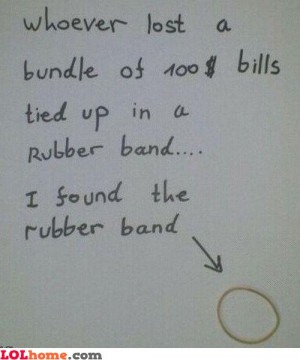 whoever lost a
bundle of 100$ bills
tied up in a
Rubber band....
I found the
rubber band
LOLhome.com